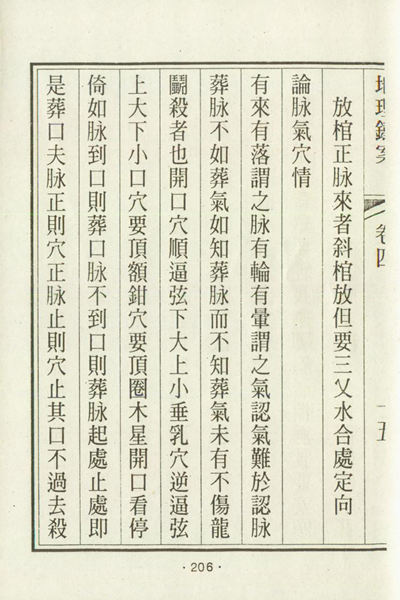 卷四
放棺正脉來者斜棺放但要三乂水合處定向
論脉氣穴情
有來有落謂之脉有輪有暈謂之氣認氣難於認脉
葬脉不如葬氣如知葬脉而不知葬氣未有不傷龍
鬭殺者也開口穴順逼弦下大上小垂乳穴逆逼弦
上大下小口穴要頂額鉗穴要頂圈木星開口看停
倚如脉到口則葬口脉不到口則葬脉起處止處即
是葬口夫脉正則穴正脉止則穴止其口不過去殺
·206·